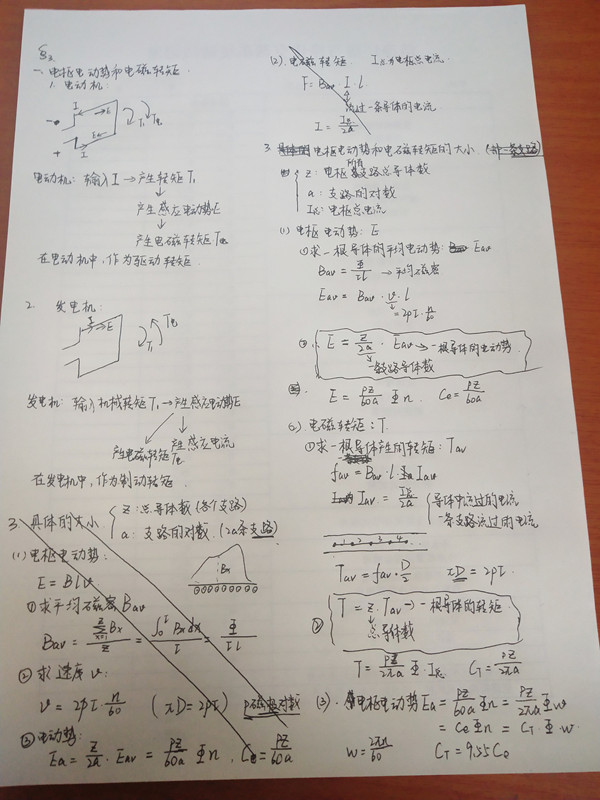 一、电枢电动势和电磁转矩
1. 电动机:
I
E
T₁ T电
电动机: 输入I → 产生转矩T₁
产生感应电动势E
产生电磁转矩T电
在电动机中, 作为驱动转矩.
2. 发电机:
I E
T₁ T电
发电机: 输入机械转矩T₁ → 产生感应电动势E
产生电磁转矩T电 产生感应电流
在发电机中, 作为制动转矩.
3. 具体的大小. { Z: 总导体数 (各个支路)
a: 支路的对数 (2a条支路)
(1) 电枢电动势:
E = Blv
Bx
① 求平均磁密Bav
Bav = ΣBx / Z = ∫₀^τ Bx dx / τ = Φ / τl
② 求速度v:
v = 2pτ·n/60 (πD = 2pτ) p磁极对数
③ 电动势:
Ea = Z/2a · Eav = PZ/60a Φn, Ce = PZ/60a
(2). 电磁转矩. I总为电枢总电流.
F = Bav I l
流过一条导体的电流
I = I总/2a
3. 电枢电动势和电磁转矩的大小.
{ Z: 电枢所有支路总导体数
a: 支路的对数
I总: 电枢总电流
(1) 电枢电动势: E
① 求一根导体的平均电动势: Eav
Bav = Φ/τl → 平均磁密
Eav = Bav · v · l
= 2pτ n/60
②. E = Z/2a · Eav → 一根导体的电动势.
一条支路导体数
E = PZ/60a Φn. Ce = PZ/60a
(2). 电磁转矩: T.
① 求一根导体产生的转矩: Tav
fav = Bav · l · Iav
Iav = I总/2a { 导体中流过的电流
一条支路流过的电流
1 2 3 4
Tav = fav · D/2 πD = 2pτ.
② T = Z · Tav → 一根导体的转矩.
总导体数
T = PZ/2πa Φ · I总 CT = PZ/2πa
(3). 电枢电动势Ea = PZ/60a Φn = PZ/2πa Φw
= CeΦn = CT·Φ·w.
w = 2πn/60 CT = 9.55Ce